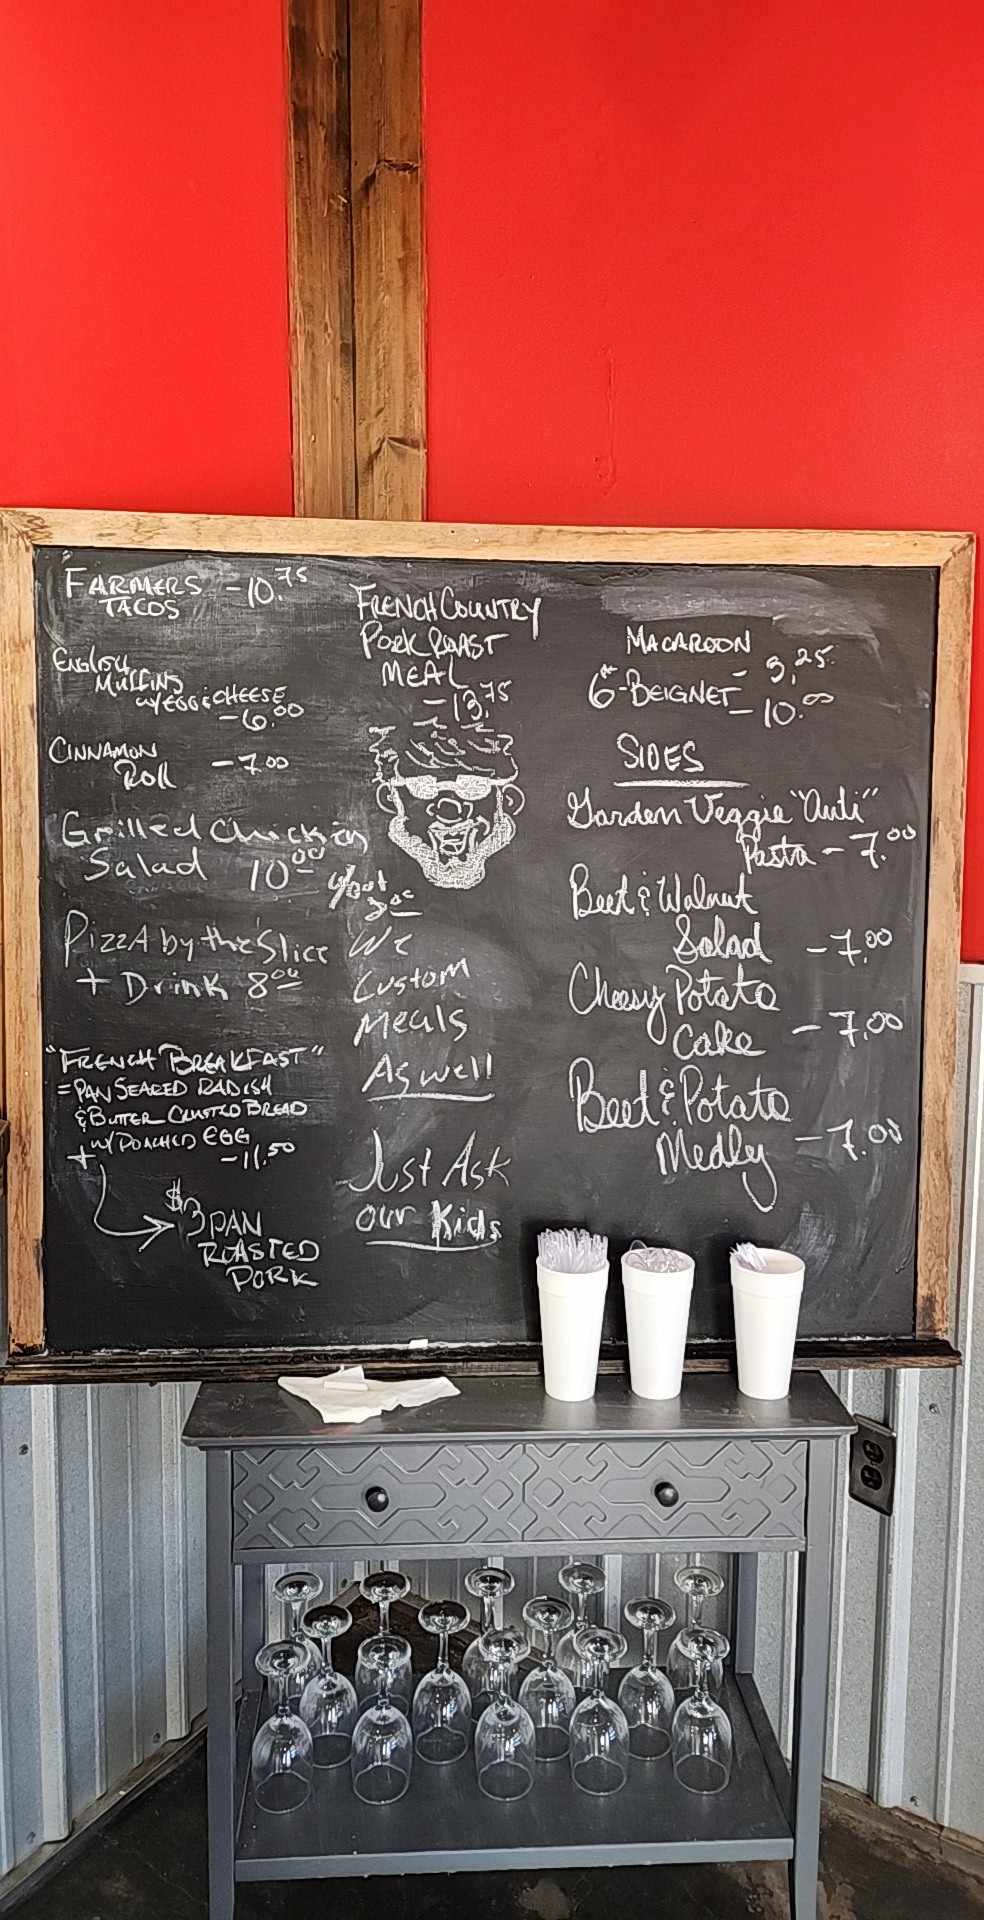 FARMERS -10.75
TACOS
ENGLISH
MUFFINS
W/EGG & CHEESE
-6.00
CINNAMON
ROLL -7.00
Grilled Chicken
Salad 10.00
w/out
Pizza by the Slice
+ Drink 8.00
"FRENCH BREAKFAST"
= PAN SEARED RADISH
& BUTTER CRUSTED BREAD
W/ POACHED EGG
+ -11.50
$3 PAN
ROASTED
PORK
FRENCH COUNTRY
PORK ROAST
MEAL
-13.75
We
Custom
Meals
As well
Just Ask
our Kids
MACAROON
- 3.25
6"-BEIGNET
-10.00
SIDES
Garden Veggie "Anti"
Pasta - 7.00
Beet & Walnut
Salad - 7.00
Cheesy Potato
Cake - 7.00
Beet & Potato
Medly - 7.00